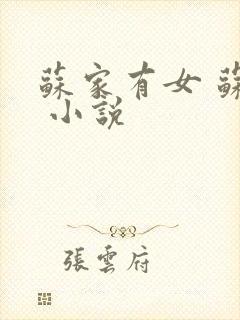 蘇家有女 蘇
小說
張雲府